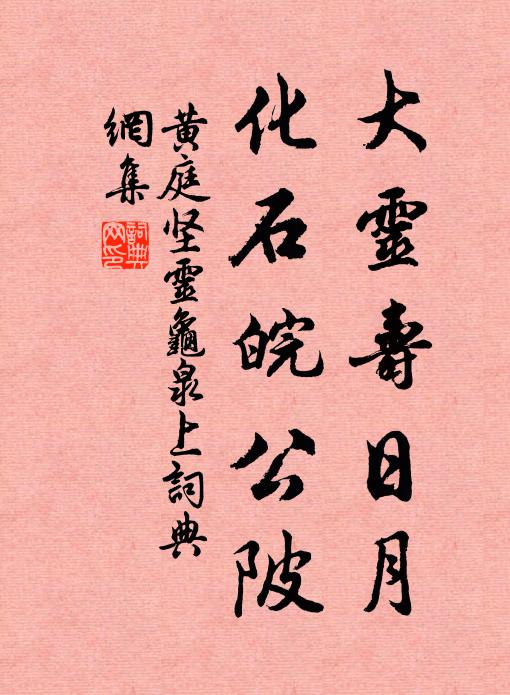 大靈壽日月
化石皖公陂
黄庭坚靈龜泉上詞典
網集
詞典
网印